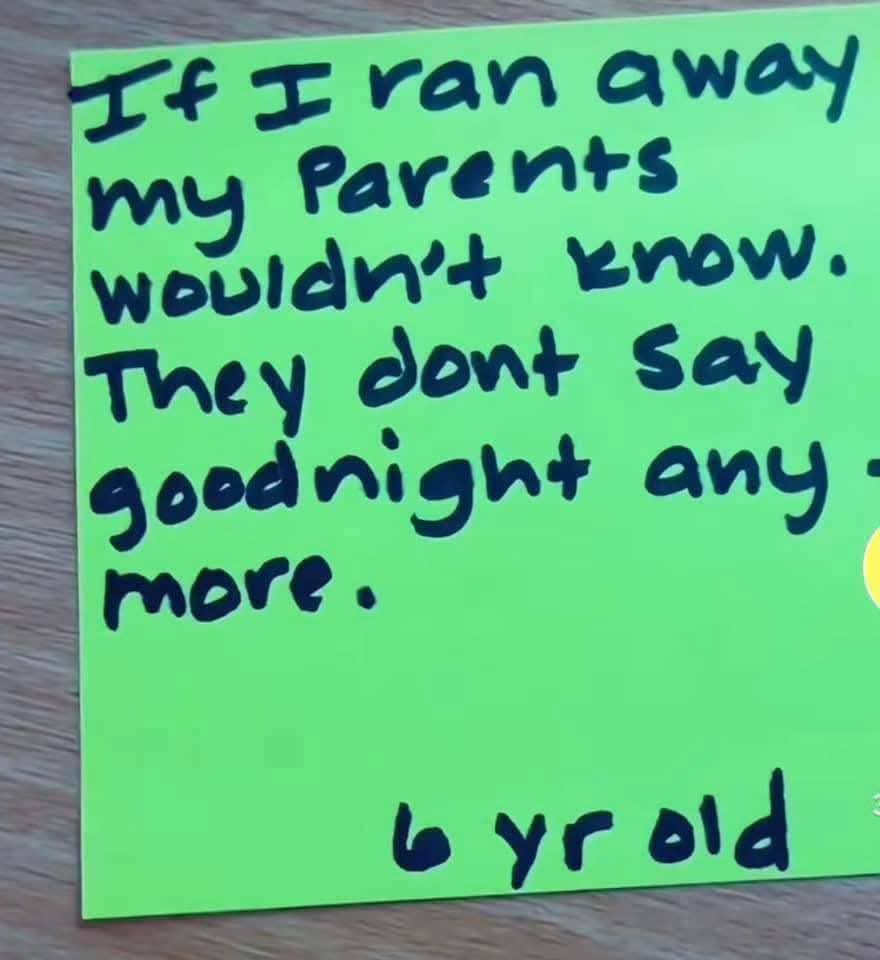 If I ran away
my Parents
wouldn't know.
They dont say
goodnight any-
more.
6 yr old